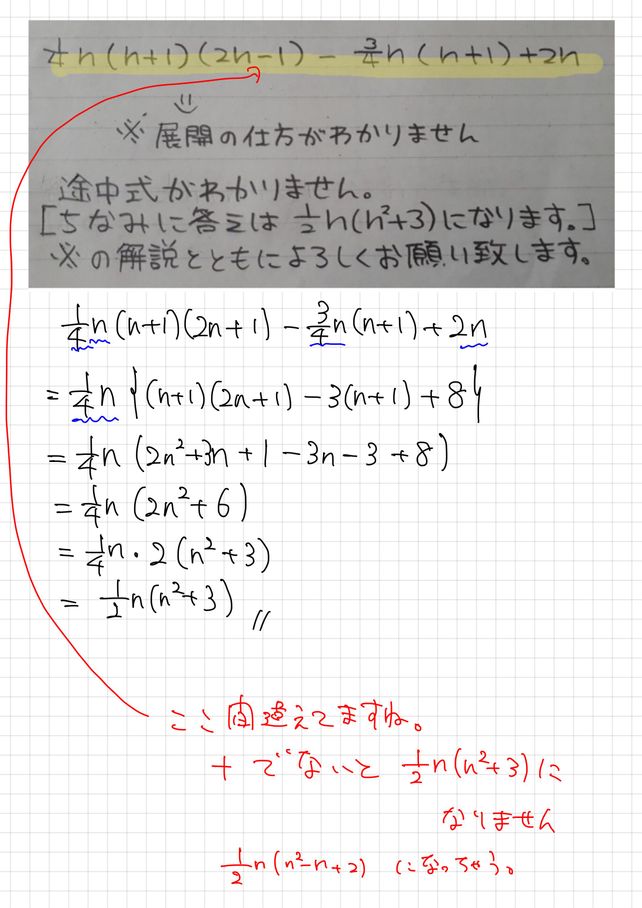 1/4 n(n+1)(2n-1) - 3/4 n(n+1)+2n
※ 展開の仕方がわかりません
途中式がわかりません。
[ちなみに答えは 1/2 n(n²+3)になります。]
※の解説とともによろしくお願い致します。
1/4 n(n+1)(2n+1) - 3/4 n(n+1) + 2n
= 1/4 n {(n+1)(2n+1) - 3(n+1) + 8}
= 1/4 n (2n²+3n+1-3n-3+8)
= 1/4 n (2n²+6)
= 1/4 n・2(n²+3)
= 1/2 n(n²+3) //
ここ間違えてますね。
+ でないと 1/2 n(n²+3)に
なりません
1/2 n(n²-n+2) になっちゃう。